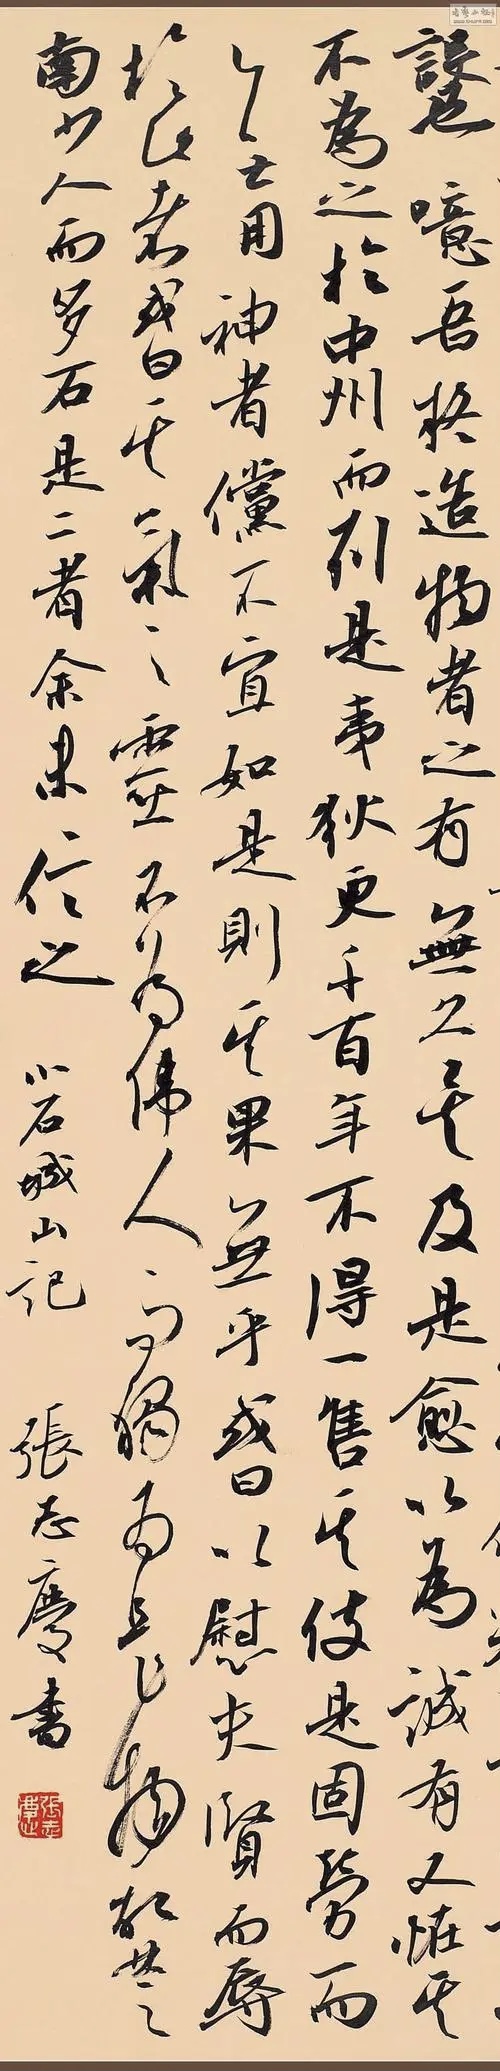 設也噫吾疑造物者之有無久矣及是愈以為誠有又怪其
不為之於中州而列是夷狄更千百年不得一售其伎是固勞而
用神者儻不宜如是則其果無乎或曰以慰夫賢而辱
於此者或曰其氣之靈不為偉人而獨為是物故楚之
南少人而多石是二者余未信之 小石城山記 張志慶書